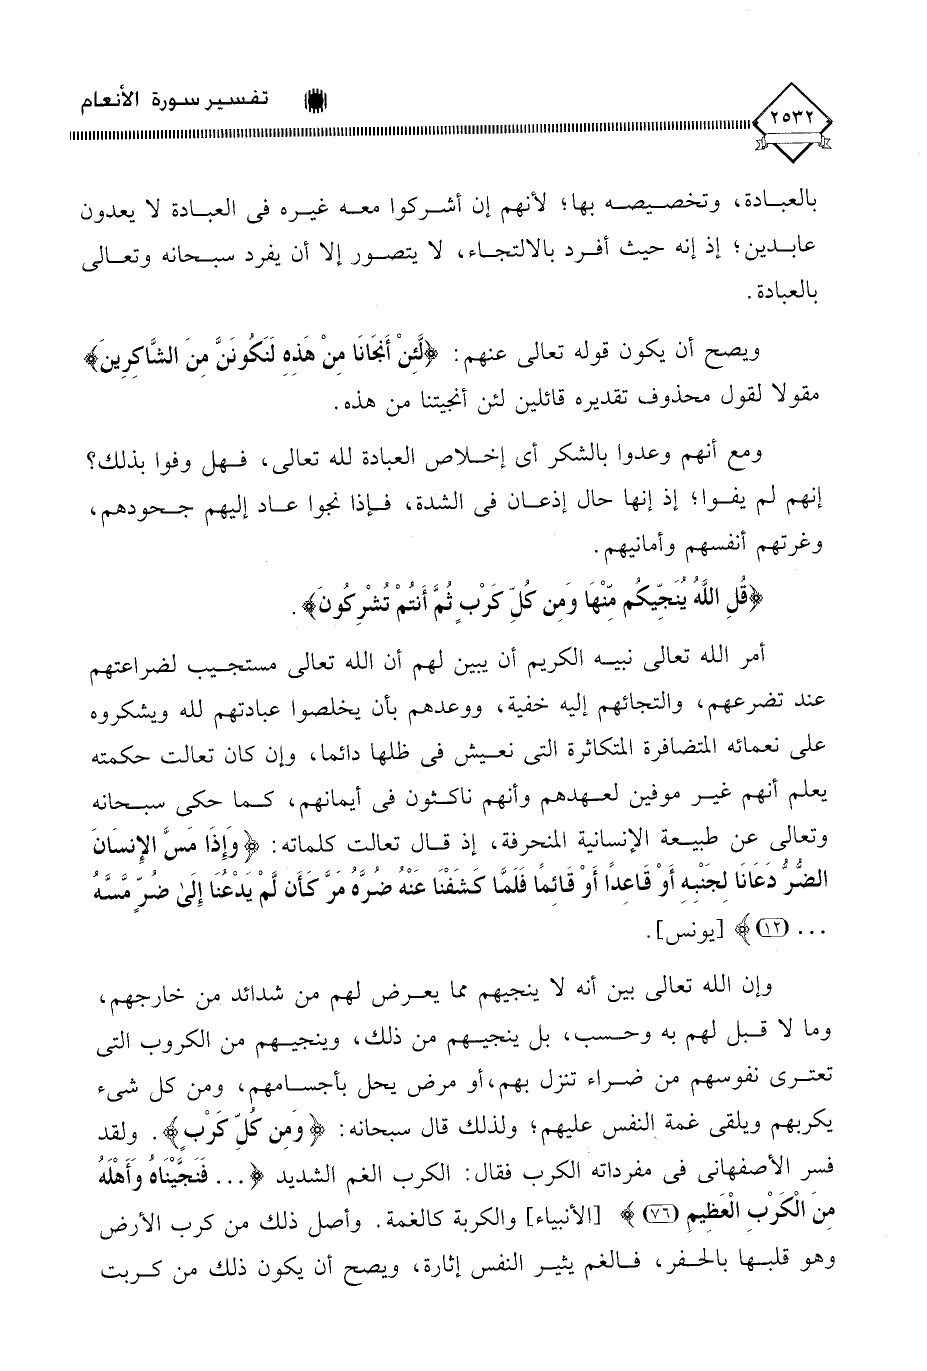 ٢٥٣٢
تفسير سورة الأنعام
بالعبادة، وتخصيصه بها؛ لأنهم إن أشركوا معه غيره فى العبادة لا يعدون
عابدين؛ إذ إنه حيث أفرد بالالتجاء، لا يتصور إلا أن يفرد سبحانه وتعالى
بالعبادة.
ويصح أن يكون قوله تعالى عنهم: ﴿لَّئِنْ أَنجَانَا مِنْ هَذِهِ لَنَكُونَنَّ مِنَ الشَّاكِرِينَ﴾
مقولا لقول محذوف تقديره قائلين لئن أنجيتنا من هذه.
ومع أنهم وعدوا بالشكر أى إخلاص العبادة لله تعالى، فهل وفوا بذلك؟
إنهم لم يفوا؛ إذ إنها حال إذعان فى الشدة، فإذا نجوا عاد إليهم جحودهم،
وغرتهم أنفسهم وأمانيهم.
﴿قُلِ اللَّهُ يُنَجِّيكُم مِّنْهَا وَمِن كُلِّ كَرْبٍ ثُمَّ أَنتُمْ تُشْرِكُونَ﴾.
أمر الله تعالى نبيه الكريم أن يبين لهم أن الله تعالى مستجيب لضراعتهم
عند تضرعهم، والتجائهم إليه خفية، ووعدهم بأن يخلصوا عبادتهم لله ويشكروه
على نعمائه المتضافرة المتكاثرة التى نعيش فى ظلها دائما، وإن كان تعالت حكمته
يعلم أنهم غير موفين لعهدهم وأنهم ناكثون فى أيمانهم، كما حكى سبحانه
وتعالى عن طبيعة الإنسانية المنحرفة، إذ قال تعالت كلماته: ﴿وَإِذَا مَسَّ الإِنسَانَ
الضُّرُّ دَعَانَا لِجَنْبِهِ أَوْ قَاعِدًا أَوْ قَائِمًا فَلَمَّا كَشَفْنَا عَنْهُ ضُرَّهُ مَرَّ كَأَن لَّمْ يَدْعُنَا إِلَىٰ ضُرٍّ مَّسَّهُ
... (١٢)﴾ [يونس].
وإن الله تعالى بين أنه لا ينجيهم مما يعرض لهم من شدائد من خارجهم،
وما لا قبل لهم به وحسب، بل ينجيهم من ذلك، وينجيهم من الكروب التى
تعترى نفوسهم من ضراء تنزل بهم،أو مرض يحل بأجسامهم، ومن كل شىء
يكربهم ويلقى غمة النفس عليهم؛ ولذلك قال سبحانه: ﴿وَمِن كُلِّ كَرْبٍ﴾. ولقد
فسر الأصفهانى فى مفرداته الكرب فقال: الكرب الغم الشديد ﴿... فَنَجَّيْنَاهُ وَأَهْلَهُ
مِنَ الْكَرْبِ الْعَظِيمِ (٧٦)﴾ [الأنبياء] والكربة كالغمة. وأصل ذلك من كرب الأرض
وهو قلبها بالحفر، فالغم يثير النفس إثارة، ويصح أن يكون ذلك من كربت